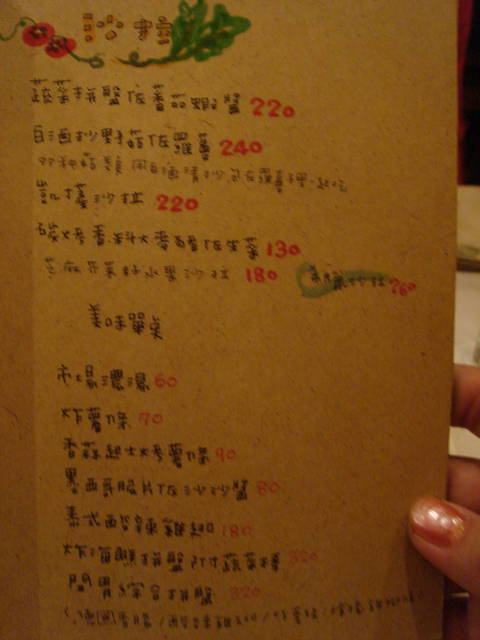 蔬菜拼盤佐番茄蝦醬 220
白酒炒野菇佐羅蔓 240
凱薩沙拉 220
碳烤香料大麥醬佐生菜 130
芝麻芥茉籽水果沙拉 180 沙拉 260
美味單桌
市場濃湯 60
炸薯條 70
香蒜起士烤薯條 90
墨西哥脆片佐沙沙醬 80
泰式酸辣雞翅 180
炸海鮮拼盤附蔬菜棒 320
開胃綜合拼盤 320